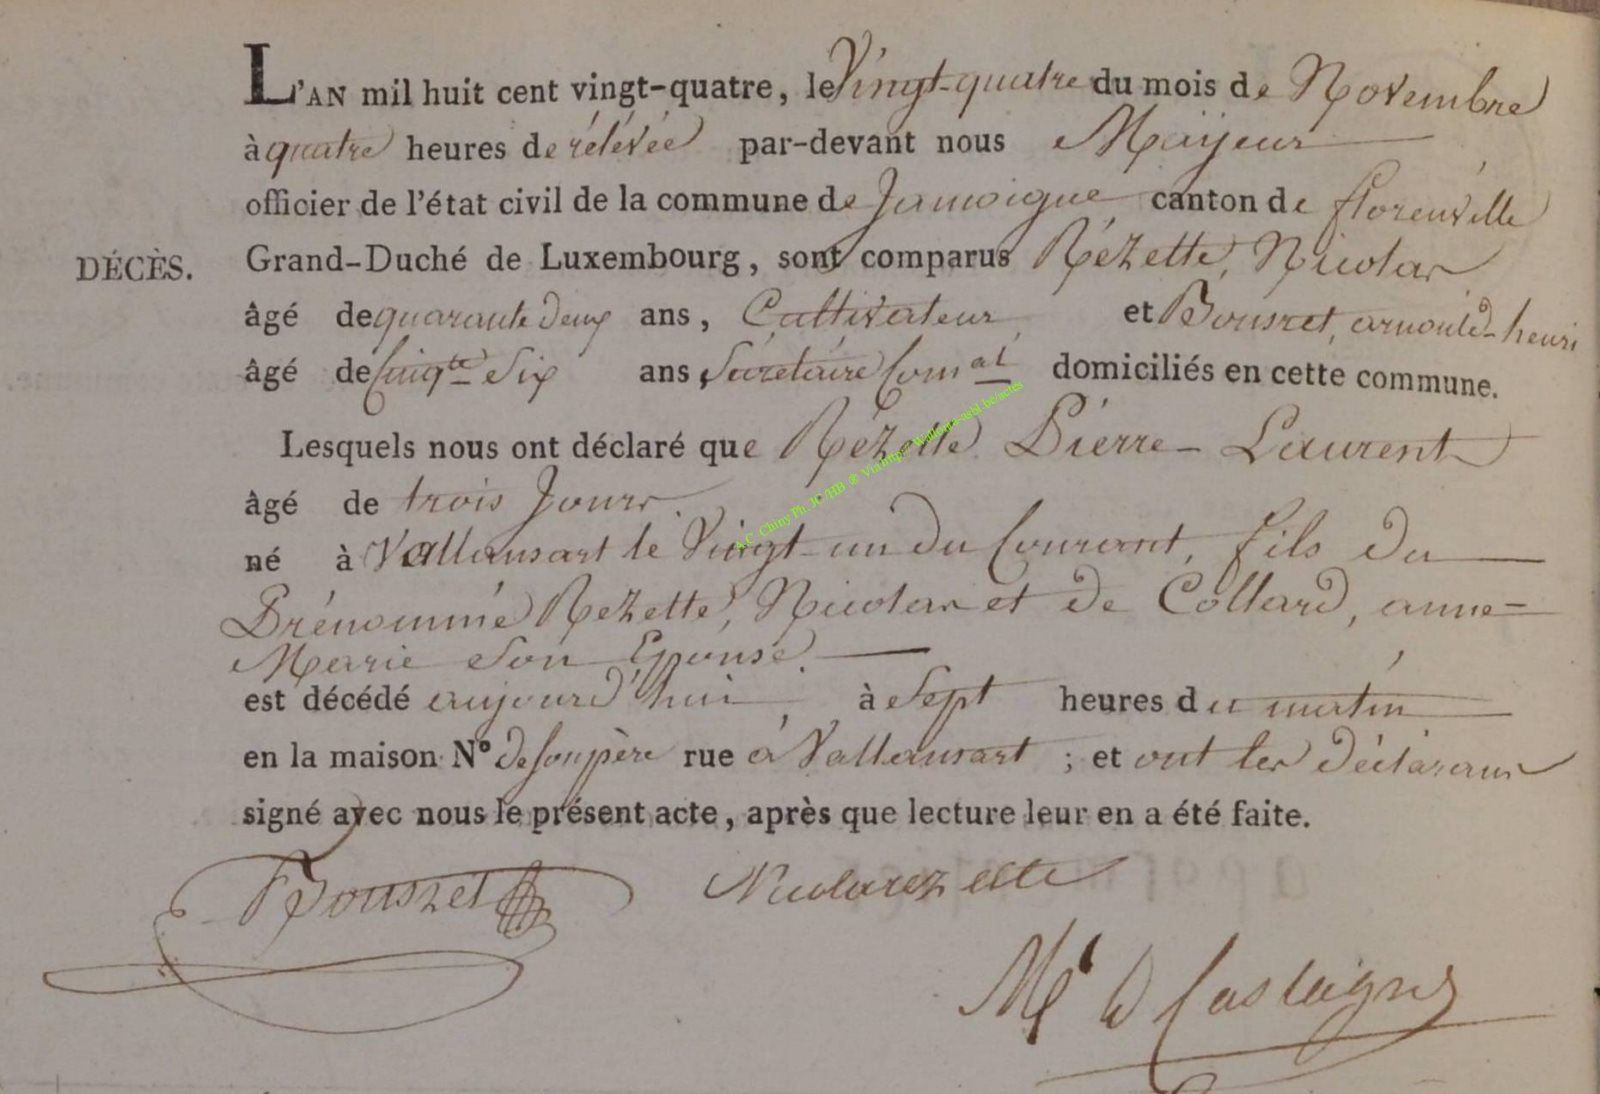 L'AN mil huit cent vingt-quatre, le Vingt-quatre du mois de Novembre
à quatre heures de rélévée par-devant nous Maÿeur
officier de l'état civil de la commune de Jamoigne canton de florenville
DÉCÈS. Grand-Duché de Luxembourg, sont comparus Rézette, Nicolas
âgé de quarante deux ans, Cultivateur et Bousret, arnould-henri
âgé de Cinqte Six ans, Sécretaire Comal domiciliés en cette commune.
Lesquels nous ont déclaré que Rézette Pierre-Laurent
âgé de trois Jours.
né à Vallansart le Vingt-un du Courant, fils du
Prénommé Rezette, Nicolas et de Collard, anne=
Marie Son Epouse.
est décédé aujourd'hui à Sept heures du matin
en la maison N° de son père rue à Vallansart ; et ont les déclarans
signé avec nous le présent acte, après que lecture leur en a été faite.
Nicolas rezette
A.C. Chiny Ph. JC/HB @ Viaimpe Wallonia-asbl.be/actes